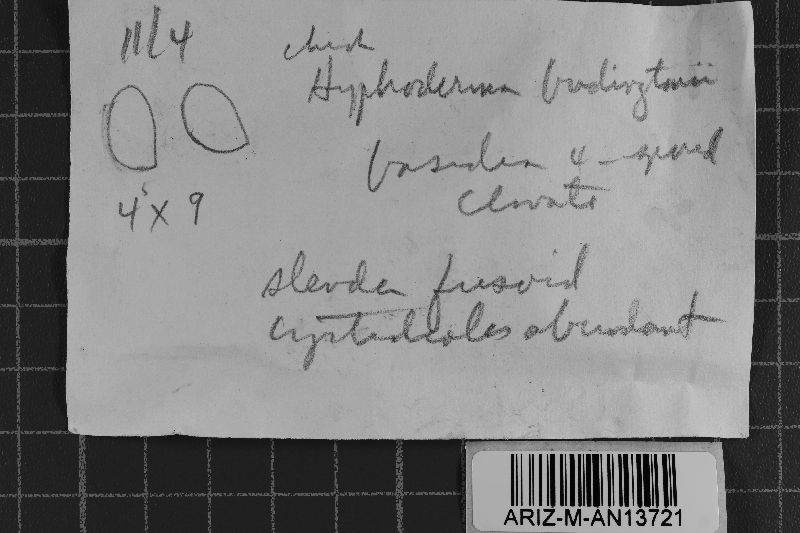 11/4
check
Hyphoderma
basidia 4-spored
clavate
4⁵ x 9
slender fusoid
cystidioles abundant
ARIZ-M-AN13721